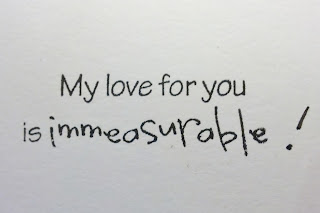 My love for you
is immeasurable!